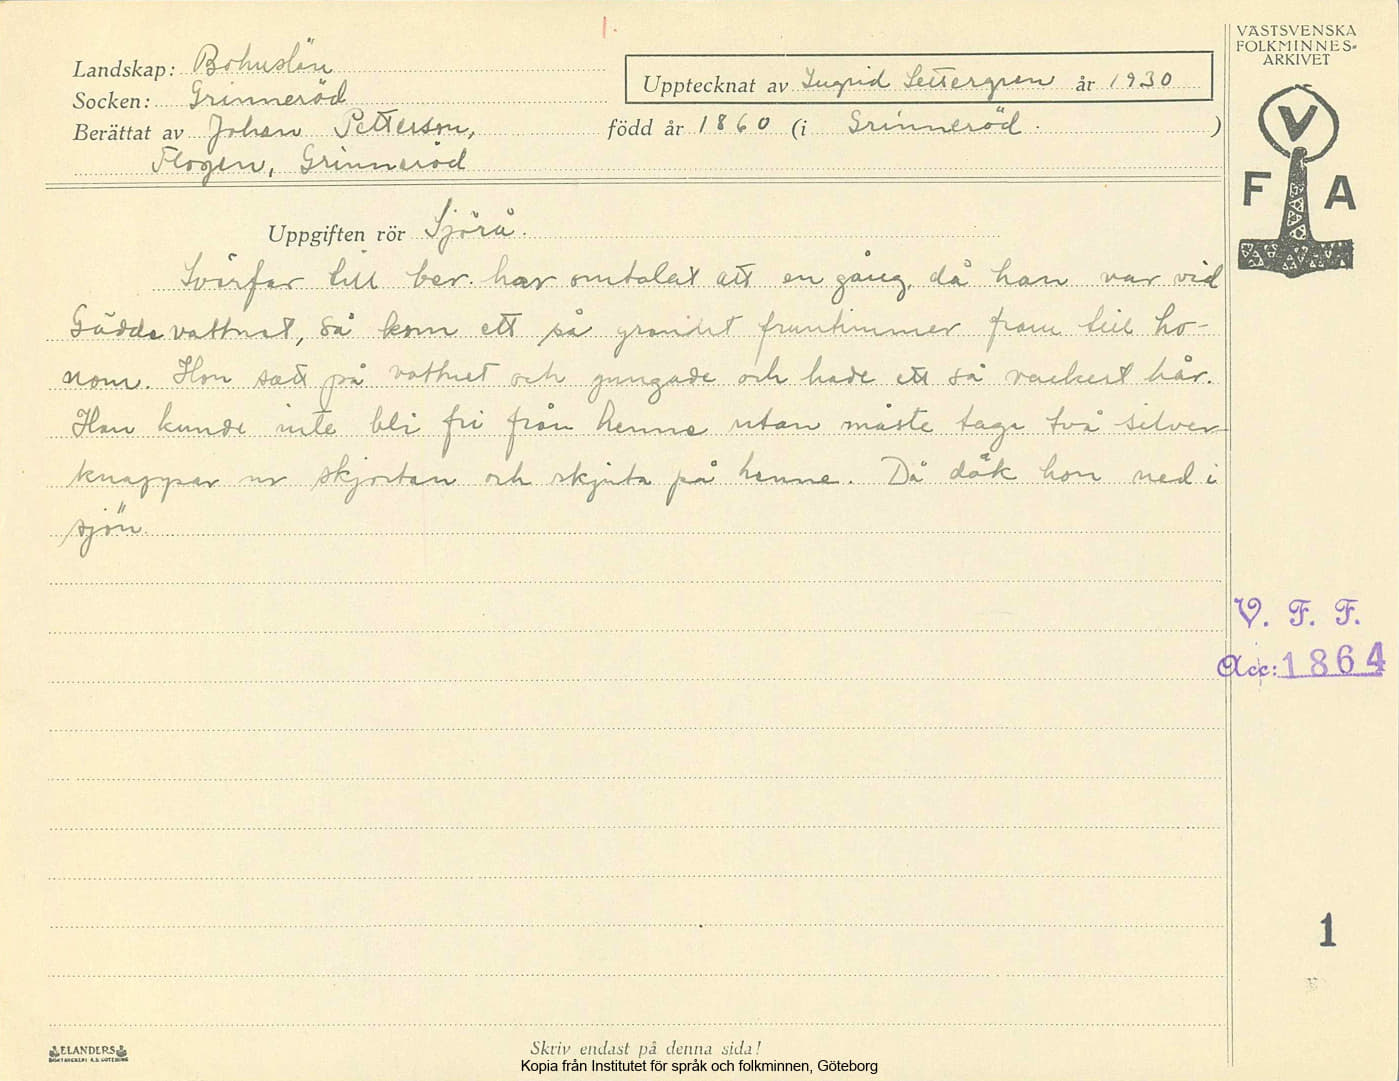 1.
VÄSTSVENSKA
FOLKMINNES-
ARKIVET
Landskap: Bohuslän
Upptecknat av Ingrid Settergren år 1930
Socken: Grinneröd
Berättat av Johan Petterson, född år 1860 (i Grinneröd. )
Flogen, Grinneröd
V
F A
Uppgiften rör Sjörå.
Svärfar till ber. har omtalat att en gång, då han var vid
Gäddevattnet, så kom ett så grandet fruntimmer fram till ho-
nom. Hon satt på vattnet och gungade och hade ett så vackert hår.
Han kunde inte bli fri från henne utan måste taga två silver-
knappar ur skjortan och skjuta på henne. Då dök hon ned i
sjön.
V. F. F.
Acc: 1864
1
ELANDERS
BOKTRYCKERI A.B. GÖTEBORG
Skriv endast på denna sida!
Kopia från Institutet för språk och folkminnen, Göteborg